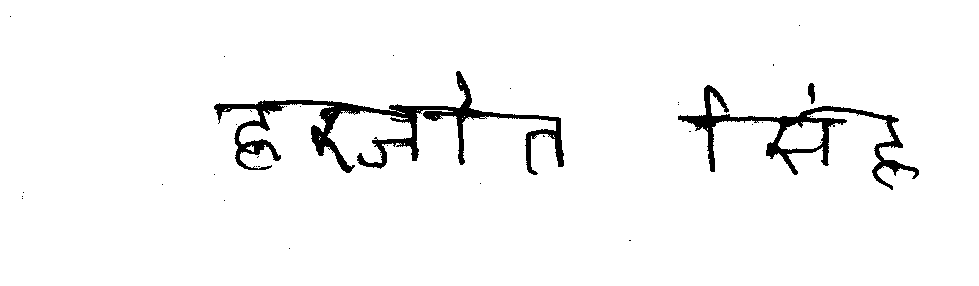 हरजोत सिंह